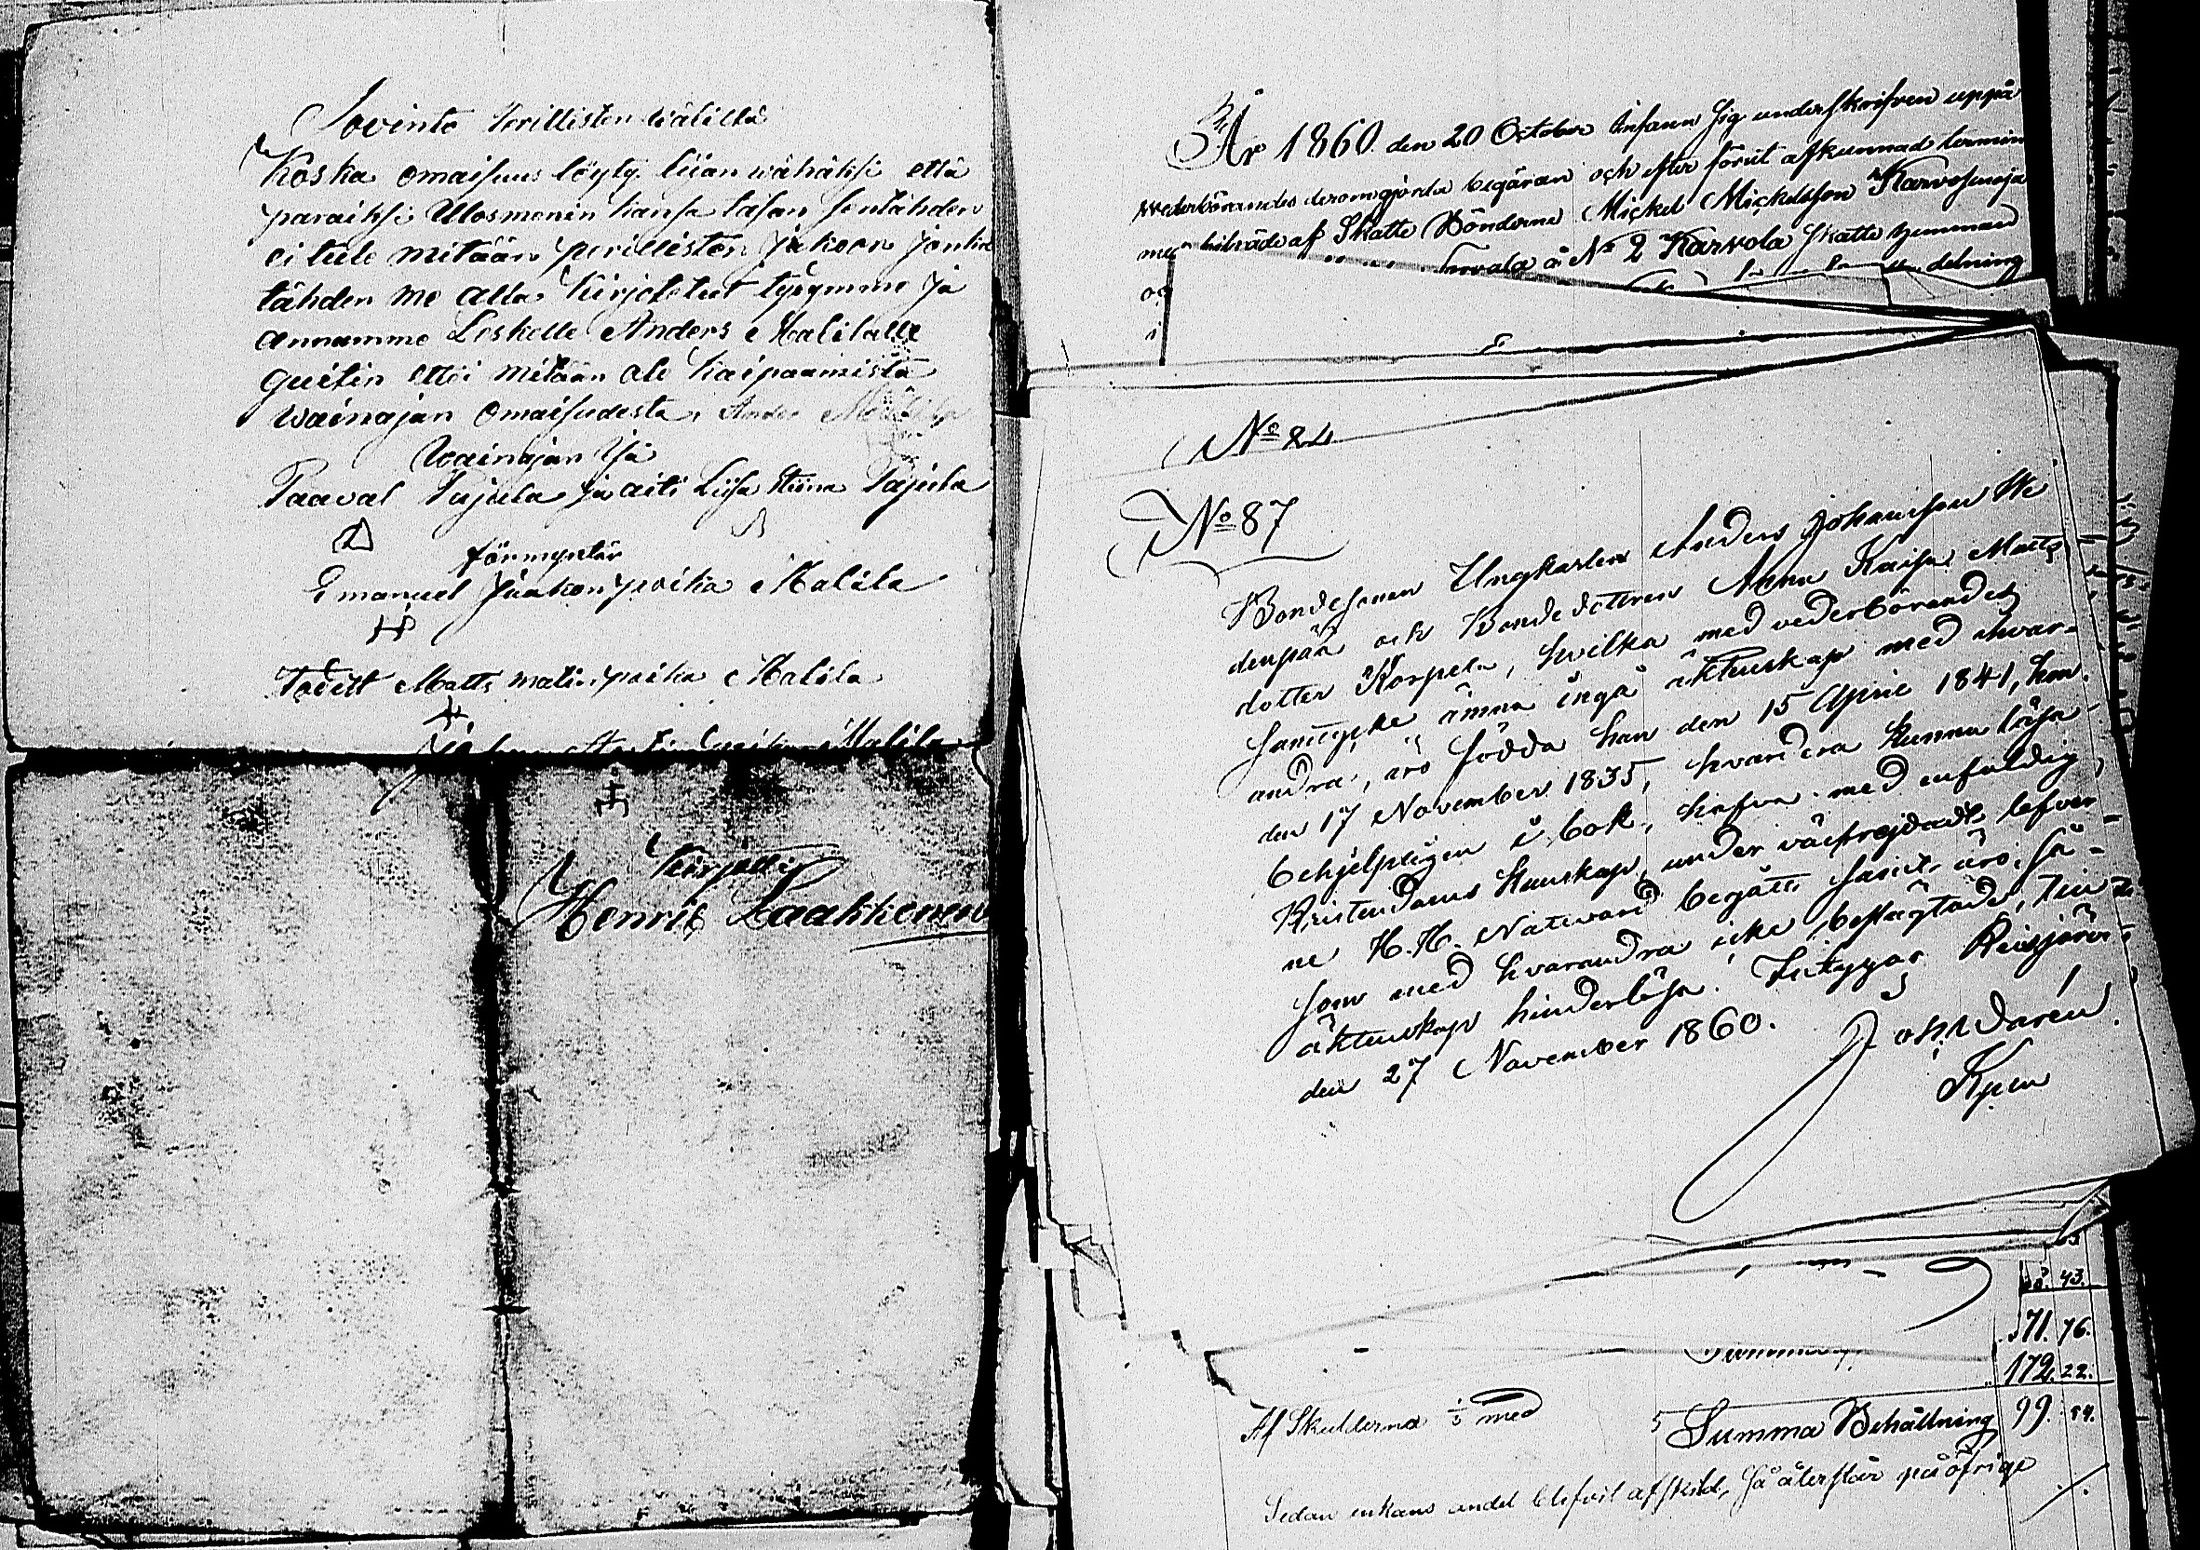 Sovinto Perillisten wälillä
Koska omaisuus löyty liian wähäksi että
paraiksi Ulosmenin kansa tasan sentähden
ei tule mitään perillisten jakoon jonka
tähden me alla kirjotetut tyyymme ja
annamme Leskelle Anders Malilalle
quitin ettei mitään ole kaipaamista
wainajan omaisudesta Anders
Wainajan Isä
Paaval Pajula ja aiti Liisa Stiina Pajula
förmyntär
Emanuel Jaakonpoika Malila
Todett Matts matinpoika Malila
Malila
Kirjotti
Henrik Laakkonen
År 1860 den 20 October infann sig underskrifven uppå
wederbörandes derom gjorda begäran och efter förut afkunnad termin
med biträde af Skatte Bönderne Mickel Mickelsson Karvosenoja
å No 2 Karvola Skatte hemman
delning
No 84
No 87
Bondesonen Ungkarlen Anders Johansson We
denpää och Bondedottren Anna Kaisa Matts
dotter Korpela, hvilka med vederbörandes
samtycke ämna ingå äktenskap med hvar-
andra, äro födda han den 15 April 1841, hon
den 17 November 1835, hvardera kunna läsa
behjelpligen i bok, hafva med enfaldig
Kristendoms kunskap, under väl frejdadt lefver-
ne H. H. Nattvard begått samt äro, så-
som med hvarandra icke beslägtade, till
äktenskap hinderlösa. Intygar Reisjärvi
den 27 November 1860.
Joh. Durén.
Kpln
43.
71. 76.
172. 22.
Af Skulderna 1/5 med
Summa Behållning 99. 54.
Sedan enkans andel blifvit afskild, så återstår på öfrige